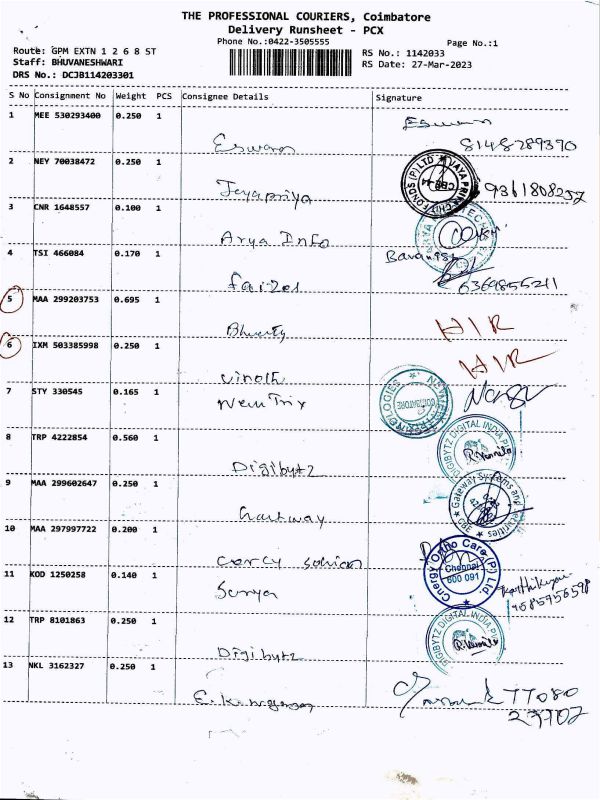 THE PROFESSIONAL COURIERS, Coimbatore
Delivery Runsheet - PCX
Phone No.:0422-3505555
Page No.:1
Route: GPM EXTN 1 2 6 8 ST
RS No.: 1142033
Staff: BHUVANESHWARI
RS Date: 27-Mar-2023
DRS No.: DCJB114203301
S No Consignment No Weight PCS Consignee Details Signature
1 MEE 530293400 0.250 1
Eswaran 8148289390
2 NEY 70038472 0.250 1
Jeyapriya 9361808257
3 CNR 1648557 0.100 1
Arya Info
4 TSI 466084 0.170 1
Faizel 6369855211
5 MAA 299203753 0.695 1
HIR
6 IXM 503385998 0.250 1
Vinoth HIR
7 STY 330545 0.165 1
NewTrix
COIMBATORE
8 TRP 4222854 0.560 1
DIGIBYTZ DIGITAL INDIA
Digibytz
9 MAA 299602647 0.250 1
Gateway Systems and
CBE
10 MAA 297997722 0.200 1
Cnergy Ortho Care (P) Ltd.
Chennai
600 091
11 KOD 1250258 0.140 1
Surya
12 TRP 8101863 0.250 1
DIGIBYTZ DIGITAL INDIA
Digibytz
13 NKL 3162327 0.250 1
77080